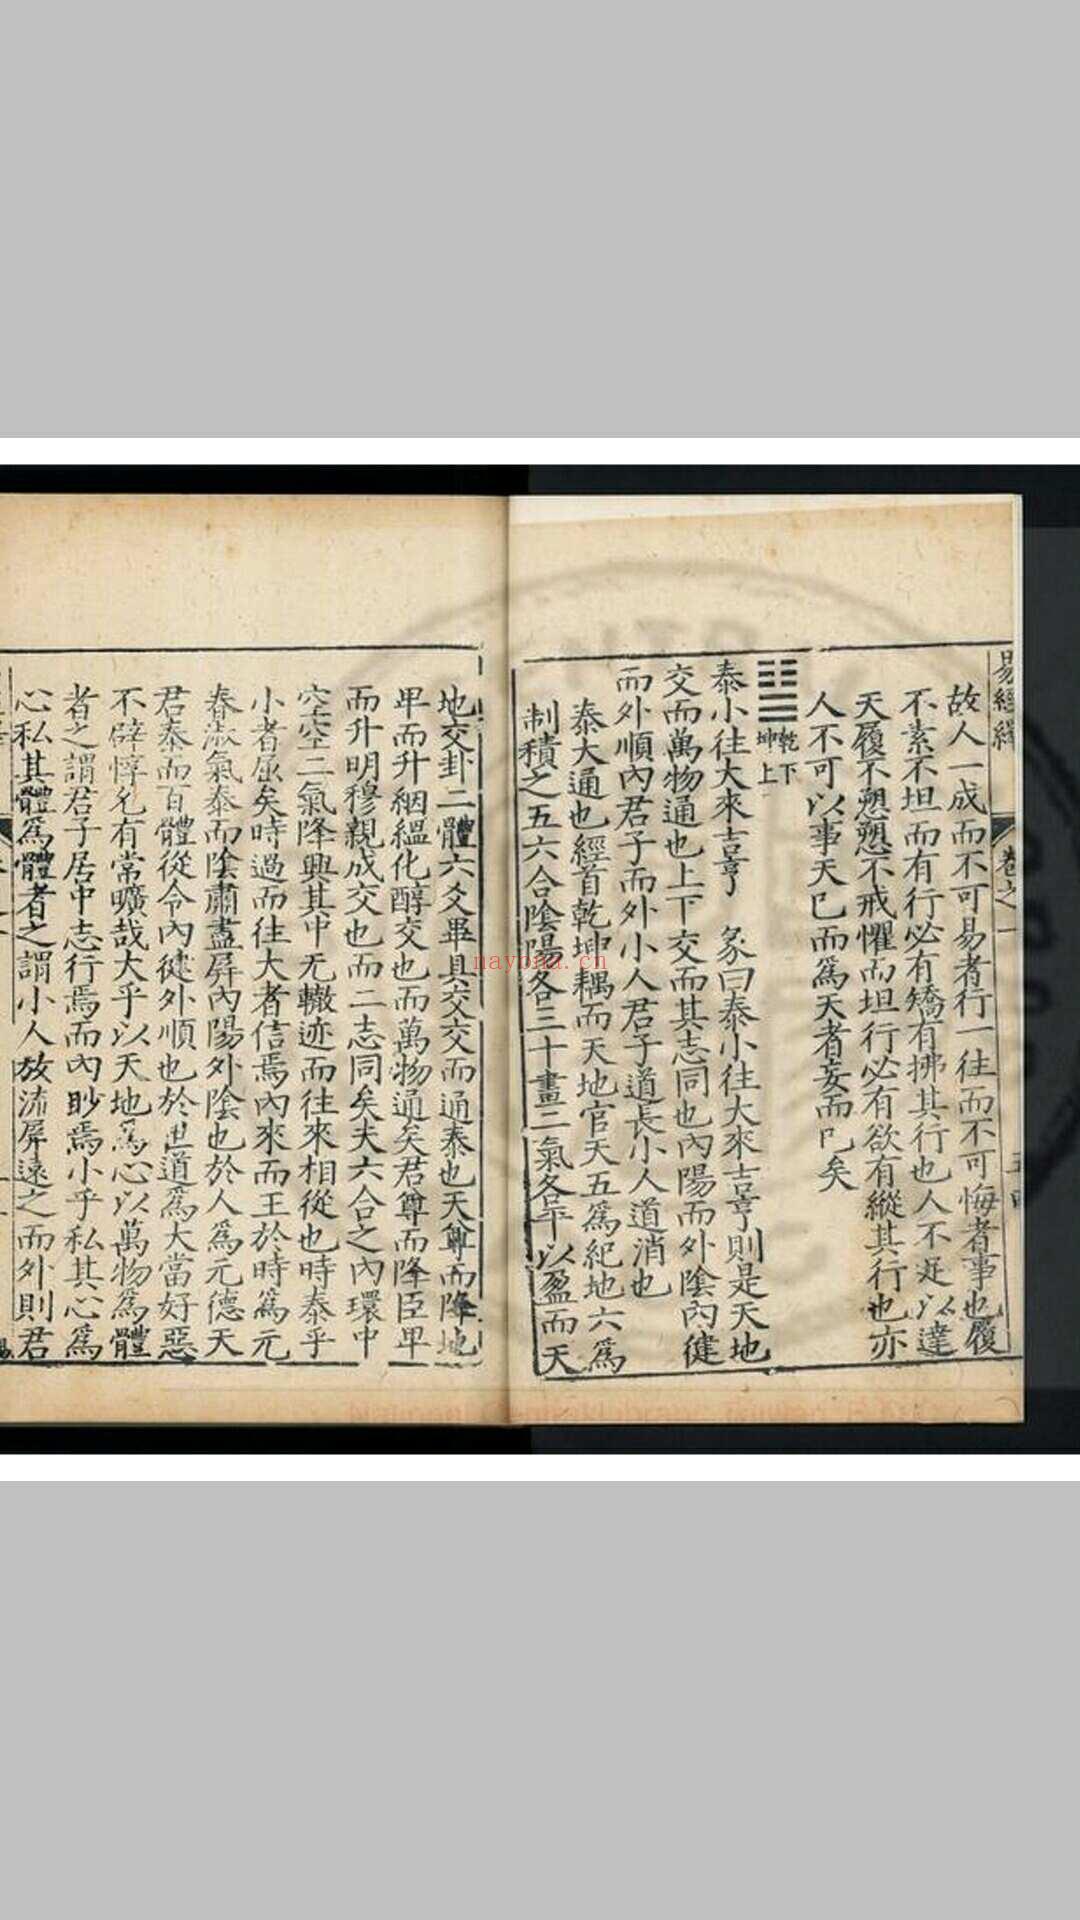 易經繹
卷之一
故人一成而不可易者行一往而不可悔者事也履
不素不坦而有行必有矯有拂其行也人不足以達
天履不愬愬不戒懼而坦行必有欲有縱其行也亦
人不可以事天已而爲天者妄而已矣
乾下
坤上
泰小往大來吉亨 彖曰泰小往大來吉亨則是天地
交而萬物通也上下交而其志同也內陽而外陰內健
而外順內君子而外小人君子道長小人道消也
泰大通也經首乾坤耦而天地官天五爲紀地六爲
制積之五六合陰陽各三十畫二氣各平以盈而天
地交卦二體六爻畢具交交而通泰也天尊而降地
卑而升絪縕化醇交也而萬物通矣君尊而降臣卑
而升明穆親成交也而二志同矣夫六合之內環中
空空二氣降興其中无轍迹而往來相從也時泰乎
小者屈矣時過而往大者信焉內來而王於時爲元
春淑氣泰而陰肅盡屏內陽外陰也於人爲元德天
君泰而百體從令內健外順也於世道爲大當好惡
不辟惇允有常曠哉大乎以天地爲心以萬物爲體
者之謂君子居中志行焉而內眇焉小乎私其心爲
心私其體爲體者之謂小人放流屏遠之而外則君
nayona.cn